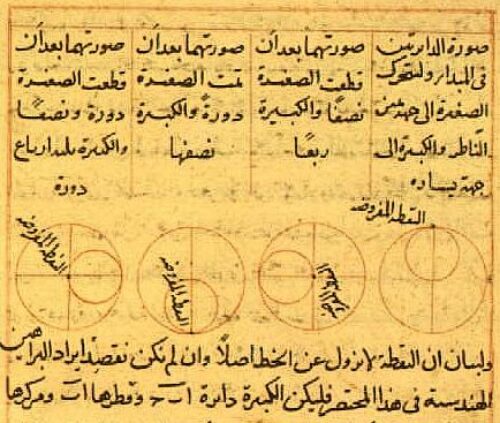 صورة الدايرتين
في المبدا ولتتحرك
الصغيرة الى جهة يمين
الناظر والكبيرة الى
جهة يساره
صورتهما بعد أن
قطعت الصغيرة
نصفًا والكبيرة
ربعًا
صورتهما بعد أن
تمت الصغيرة
دورةً والكبيرة
نصفها
صورتهما بعد أن
قطعت الصغيرة
دورة ونصفًا
والكبيرة ثلثة ارباع
دورة
النقطة المفروضة
النقطة المفروضة
النقطة المفروضة
النقطة المفروضة
ولبيان ان النقطة لا تزول عن الخط اصلًا وان لم نكن نقصد ايراد البراهين
الهندسية في هذا المختصر فليكن الكبيرة دايرة ا ب ح وقطرها ا ب ومركزها